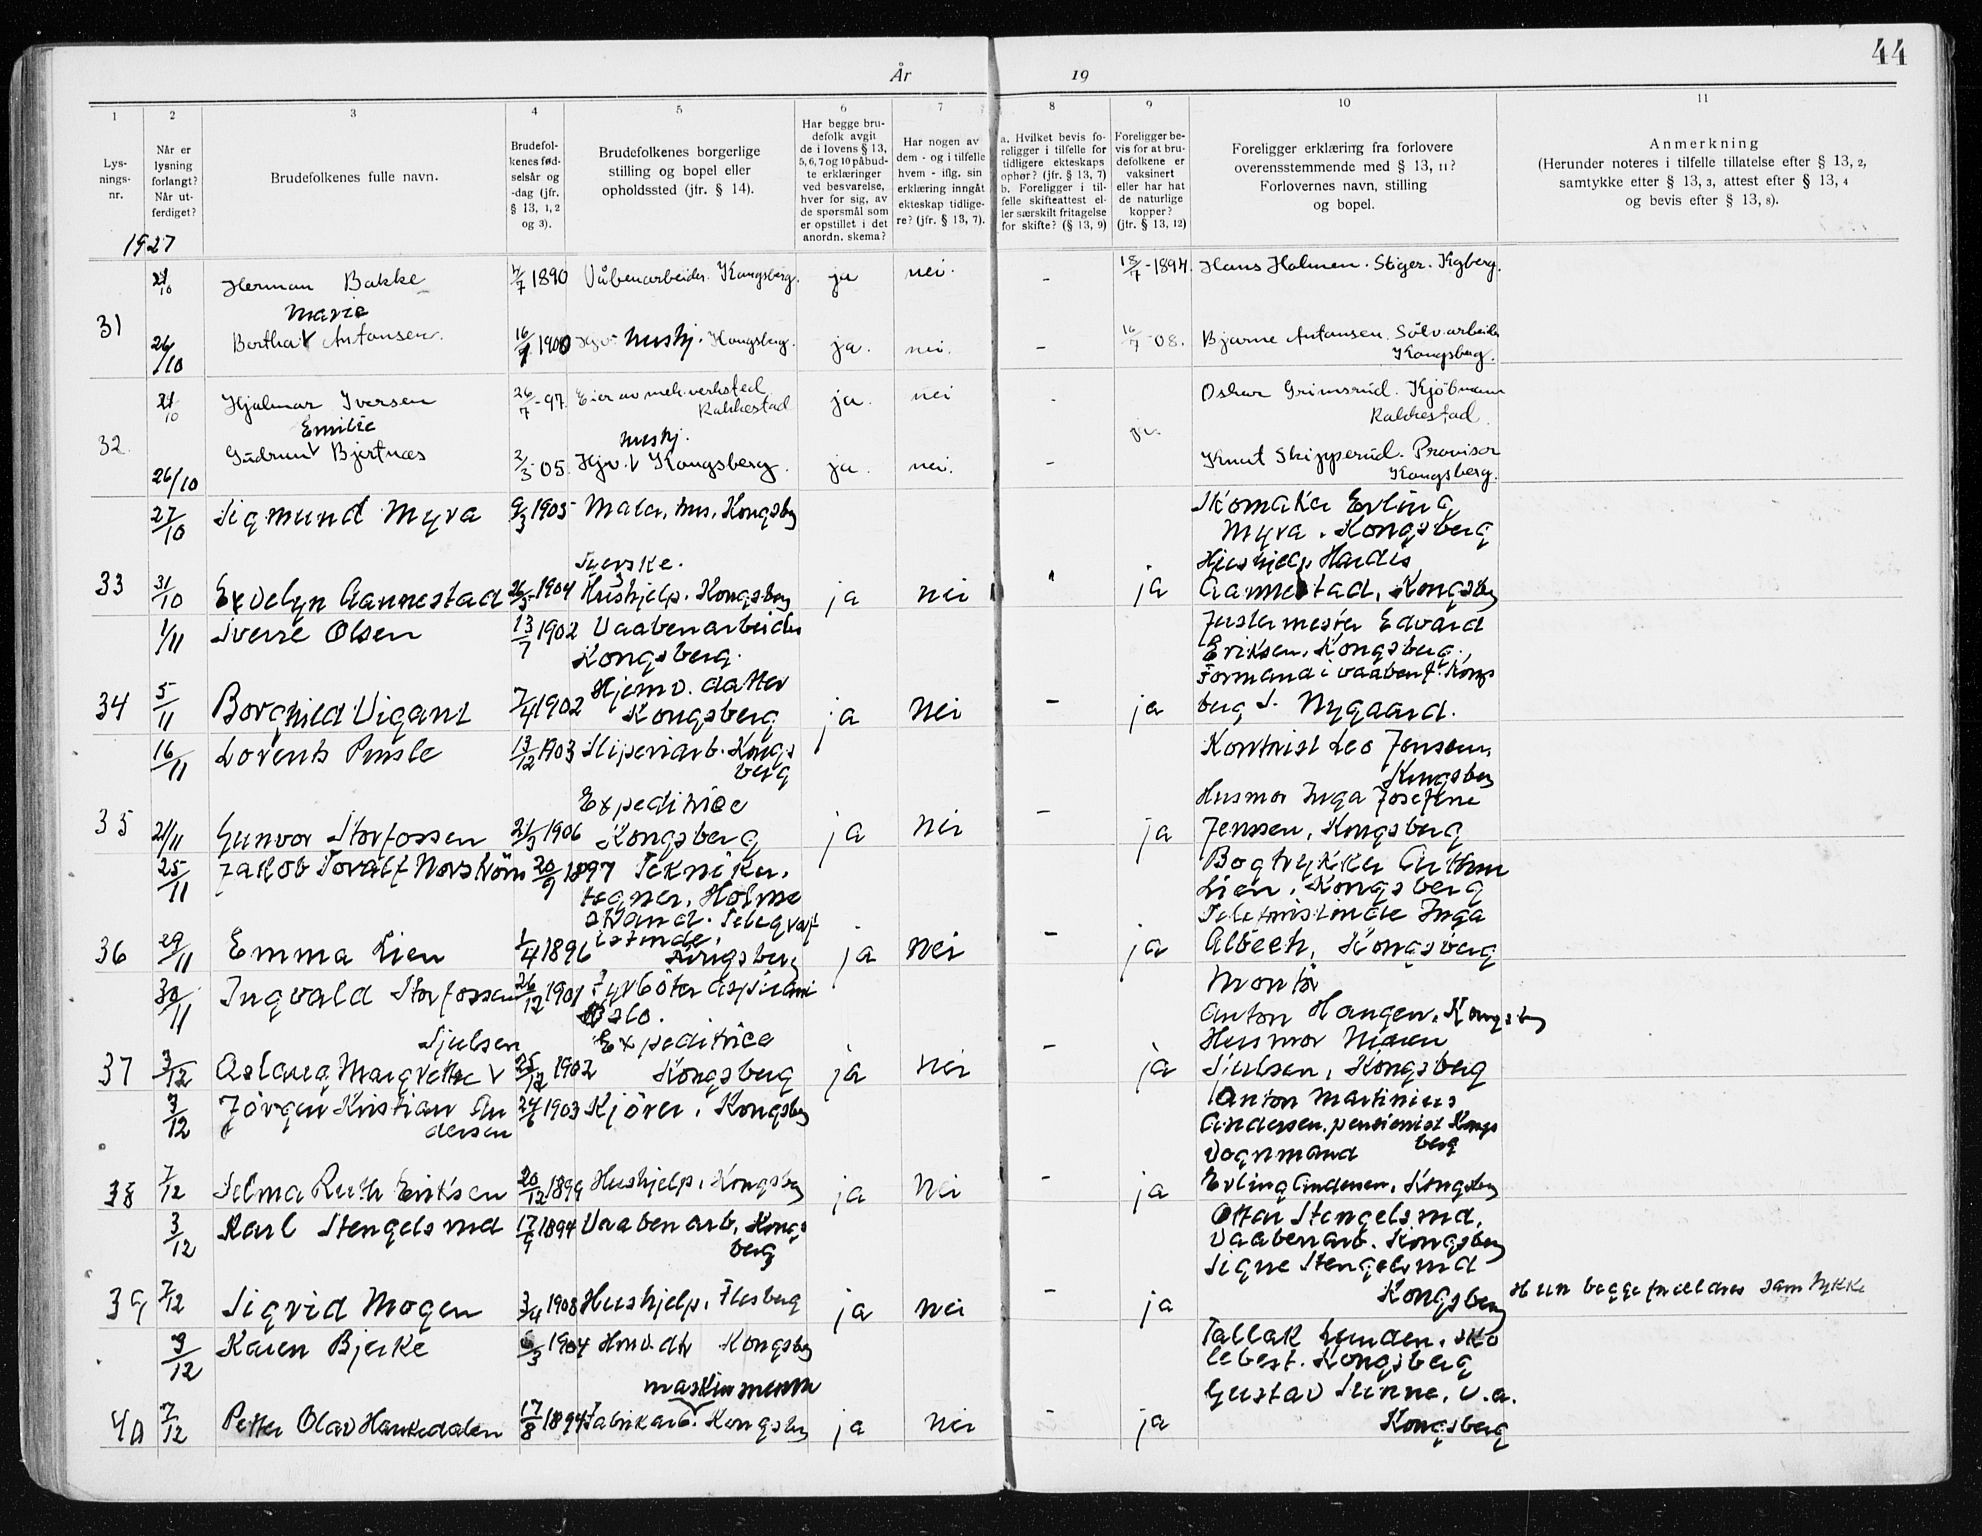 44
År 19
1 2 3 4 5 6 7 8 9 10 11
Lys-
nings-
nr.
Når er
lysning
forlangt?
Når ut-
ferdiget?
Brudefolkenes fulle navn.
Brudefol-
kenes fød-
selsår og
-dag (jfr.
§ 13, 1, 2
og 3).
Brudefolkenes borgerlige
stilling og bopel eller
opholdssted (jfr. § 14).
Har begge bru-
defolk avgit
de i lovens § 13,
5, 6, 7 og 10 påbud-
te erklæringer
ved besvarelse,
hver for sig, av
de spørsmål som
er opstillet i det
anordn. skema?
Har nogen av
dem - og i tilfelle
hvem - iflg. sin
erklæring inngått
ekteskap tidlige-
re? (jfr. § 13, 7).
a. Hvilket bevis fo-
religger i tilfelle for
tidligere ekteskaps
ophør? (jfr. § 13, 7)
b. Foreligger i til-
felle skifteattest el-
ler særskilt fritagelse
for skifte? (§ 13, 9)
Foreligger be-
vis for at bru-
defolkene er
vaksinert
eller har hat
de naturlige
kopper?
(jfr. § 13, 12)
Foreligger erklæring fra forlovere
overensstemmende med § 13, 11?
Forlovernes navn, stilling
og bopel.
Anmerkning
(Herunder noteres i tilfelle tillatelse efter § 13, 2,
samtykke efter § 13, 3, attest efter § 13, 4
og bevis efter § 13, 8).
1927
21/10 Herman Bakke 4/7 1890 Våbenarbeider. Kongsberg. ja nei. - 18/7 - 1894. Hans Holmen. Stiger. Kgberg.
Marie
31 26/10 Bertha V Antonsen. 16/7 1900 Hjv. hushj. Kongsberg. ja. nei. - 16/7 - 08. Bjarne Antonsen. Sölvarbeider
Kongsberg.
21/10 Hjalmar Iversen 26/7 - 97. Eier av mek. verksted ja. nei - Oskar Grimsrud. Kjöbmann
Rakkestad Rakkestad.
Emilie hushj.
32. 26/10 Gudrun V Bjertnæs 2/3 - 05. Hjv. V Kongsberg. ja. nei. - Knut Skipperud. Provisor
Kongsberg.
27/10 Sigmund Myra 9/3 1905 Maler. Kongsbg Skomaker Erling
Myra. Kongsberg
Hushjelp Hardis
33 31/10 Evelyn Aannestad 26/5 1904 Hushjelp. Kongsberg ja nei ja Aannestad, Kongsberg
1/11 Sverre Olsen 13/7 1902 Vaabenarbeider Justermester Edvard
Kongsberg. Eriksen, Kongsberg.
Hjemv. datter Formand i vaabenf. Kongs
34 5/11 Borghild Vigant 7/4 1902 Kongsberg ja nei - ja berg S. Nygaard.
16/11 Lorents Prusle 13/12 1903 Sliperiarb. Kongs Kontorist Leo Jenssen,
berg Kongsberg
Expeditrice Husmor Inga Josefine
35 21/11 Gunvor Storfossen 21/3 1906 Kongsberg ja nei - ja Jenssen, Kongsberg
25/11 Jakob Toralf Norström 20/9 1897 Tekniker, Bogtrykker Arthur
tegner, Holme Lien, Kongsberg
strand. Telegraf Telefonistinde Inga
36 29/11 Emma Lien 1/4 1896 istinde, Kongsberg ja nei - ja Albech, Kongsberg
30/11 Ingvald Storfossen 26/12 1901 Fyrböter aspirant Montör
Oslo. Anton Haugen. Kongsberg
Sjulsen Expeditrice Husmor Maren
37 3/12 Aslaug Margrethe V 25/12 1902 Kongsberg ja nei - ja Sjulsen, Kongsberg
3/12 Jörgen Kristian An 24/6 1903 Kjörer, Kongsberg Anton Martinius
dersen Andersen, pensionist Kongs
berg
Vognmand
38 7/12 Selma Ruth Eriksen 20/12 1899 Hushjelp, Kongsberg ja nei - ja Erling Andersen, Kongsberg
3/12 Karl Stengelsrud 17/9 1894 Vaabenarb, Kongs Ottar Stengelsrud,
berg Vaabenarb. Kongsberg
Signe Stengelsrud
39 7/12 Sigrid Mogen 3/4 1908 Hushjelp, Flesberg ja nei - ja Kongsberg Hun begge forældres samtykke
3/12 Karen Bjerke 6/3 1904 Hmv. dtr Kongsberg Tallak Lunden, sko
lebest. Kongsberg
Gustav Sinne, v.a.
40 7/12 Petter Olav Haukedalen 17/8 1894 Fabrikarb. Kongsberg ja nei - ja Kongsberg